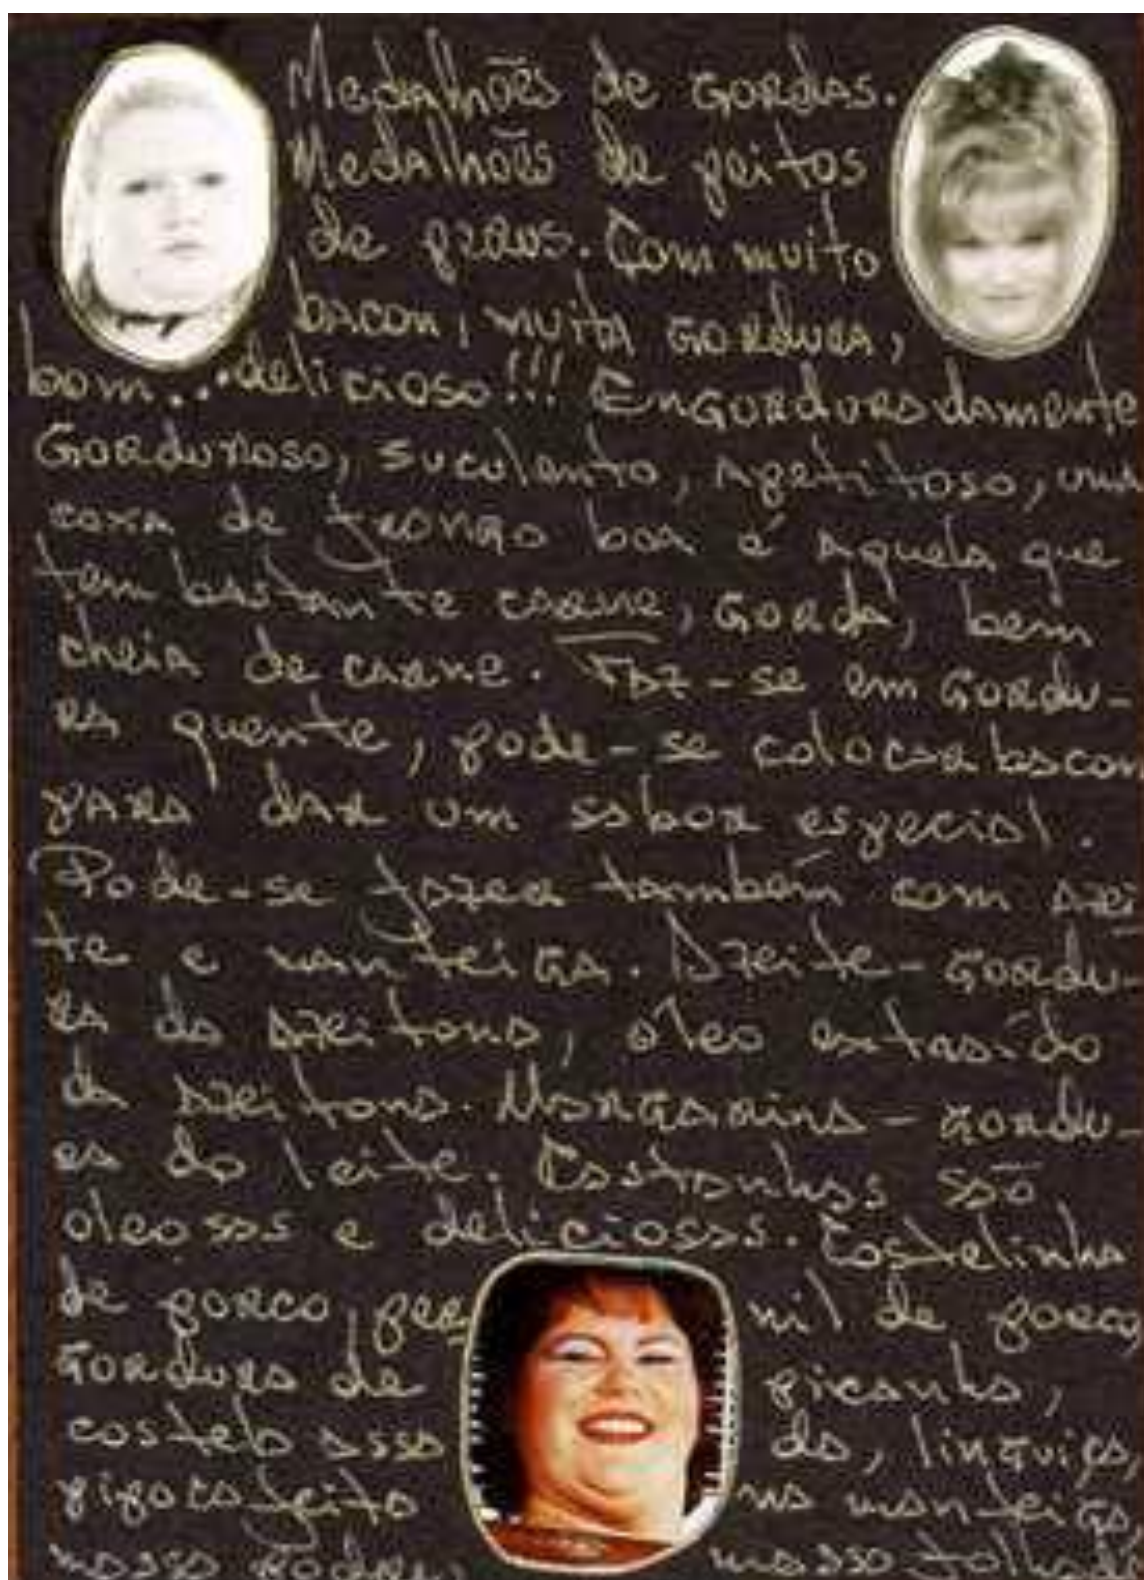 Medalhões de GORDAS.
Medalhões de peitos
de perus. Com muito
bacon, muita GORDURA,
bom... delicioso!!! ENGORDURADAmente
GORDUROSO, suculento, Apetitoso, uma
coxa de frango boa é Aquela que
tem bastante carne, GORDA, bem
cheia de carne. Faz-se em GORDU-
RA quente, pode-se colocar bacon
para dar um sabor especial.
Pode-se fazer também com Azei
te e manteiga. Azeite-GORDU-
RA da Azeitona, óleo extraído
da Azeitona. Margarina-GORDU-
RA do leite. Castanhas são
oleosas e deliciosas. Costelinha
de porco, per nil de porco,
GORDURA de picanha,
costela assa da, linguiça,
pipoca feita na manteiga,
massa massa folhada